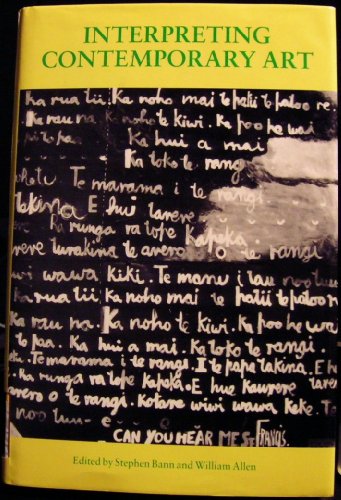 INTERPRETING
CONTEMPORARY ART
Ka rua tii. Ka noho mai te patii te patoo re.
Ka rau na Ka noho te kiwi. Ka poo he wai
Ka hui a mai
Ka toko te rangi
Te marama i te rangi
takina E hui tarere
Ka runga ra tope Kapeka.
turakina te arero o te rangi
wiwi wawa Kiki. Te manu i tau
Ka rua tii Ka noho mai te patii te patoo re
Ka rau na. Ka noho te kiwi. Ka poo he wa
to paa. Ka hui a mai. Ka toko te rangi.
Te marama i te rangi. I te pape takina. E
Ka runga ra tope Kapeka. E hue Kaurere tarere
arero o te rangi. Kotare wiwi wawa Keke. Te
noo
CAN YOU HEAR ME ST FRANCIS.
Edited by Stephen Bann and William Allen